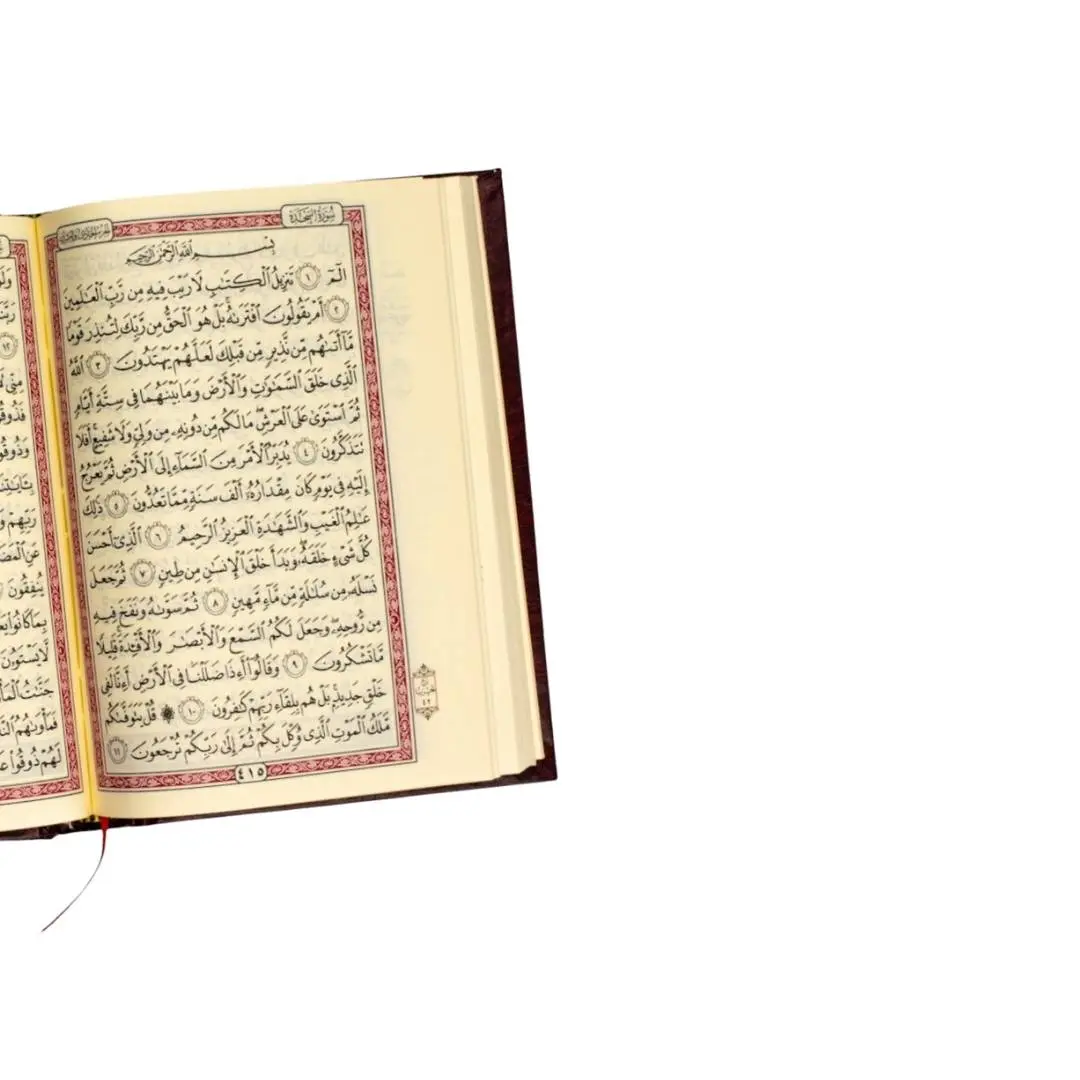 سُورَةُ السَّجْدَةِ
بِسْمِ ٱللَّهِ ٱلرَّحْمَٰنِ ٱلرَّحِيمِ
الٓمٓ ١ تَنزِيلُ ٱلْكِتَٰبِ لَا رَيْبَ فِيهِ مِن رَّبِّ ٱلْعَٰلَمِينَ
٢ أَمْ يَقُولُونَ ٱفْتَرَىٰهُ ۚ بَلْ هُوَ ٱلْحَقُّ مِن رَّبِّكَ لِتُنذِرَ قَوْمًا
مَّآ أَتَىٰهُم مِّن نَّذِيرٍ مِّن قَبْلِكَ لَعَلَّهُمْ يَهْتَدُونَ ٣ ٱللَّهُ
ٱلَّذِى خَلَقَ ٱلسَّمَٰوَٰتِ وَٱلْأَرْضَ وَمَا بَيْنَهُمَا فِى سِتَّةِ أَيَّامٍ
ثُمَّ ٱسْتَوَىٰ عَلَى ٱلْعَرْشِ ۖ مَا لَكُم مِّن دُونِهِۦ مِن وَلِىٍّ وَلَا شَفِيعٍ ۚ أَفَلَا
تَتَذَكَّرُونَ ٤ يُدَبِّرُ ٱلْأَمْرَ مِنَ ٱلسَّمَآءِ إِلَى ٱلْأَرْضِ ثُمَّ يَعْرُجُ
إِلَيْهِ فِى يَوْمٍ كَانَ مِقْدَارُهُۥٓ أَلْفَ سَنَةٍ مِّمَّا تَعُدُّونَ ٥ ذَٰلِكَ
عَٰلِمُ ٱلْغَيْبِ وَٱلشَّهَٰدَةِ ٱلْعَزِيزُ ٱلرَّحِيمُ ٦ ٱلَّذِىٓ أَحْسَنَ
كُلَّ شَىْءٍ خَلَقَهُۥ ۖ وَبَدَأَ خَلْقَ ٱلْإِنسَٰنِ مِن طِينٍ ٧ ثُمَّ جَعَلَ
نَسْلَهُۥ مِن سُلَٰلَةٍ مِّن مَّآءٍ مَّهِينٍ ٨ ثُمَّ سَوَّىٰهُ وَنَفَخَ فِيهِ
مِن رُّوحِهِۦ ۖ وَجَعَلَ لَكُمُ ٱلسَّمْعَ وَٱلْأَبْصَٰرَ وَٱلْأَفْـِٔدَةَ ۚ قَلِيلًا
مَّا تَشْكُرُونَ ٩ وَقَالُوٓا۟ أَءِذَا ضَلَلْنَا فِى ٱلْأَرْضِ أَءِنَّا لَفِى
خَلْقٍ جَدِيدٍۭ ۚ بَلْ هُم بِلِقَآءِ رَبِّهِمْ كَٰفِرُونَ ١٠ ۞ قُلْ يَتَوَفَّىٰكُم
مَّلَكُ ٱلْمَوْتِ ٱلَّذِى وُكِّلَ بِكُمْ ثُمَّ إِلَىٰ رَبِّكُمْ تُرْجَعُونَ ١١
٤١٥
وَلَوْ
١٢
فَذُوقُوا۟
وَذُوقُوا۟
رَبِّهِمْ
يُنفِقُونَ
لَّا يَسْتَوُۥنَ
جَنَّٰتُ ٱلْمَأْوَىٰ
لَهُمْ ذُوقُوا۟